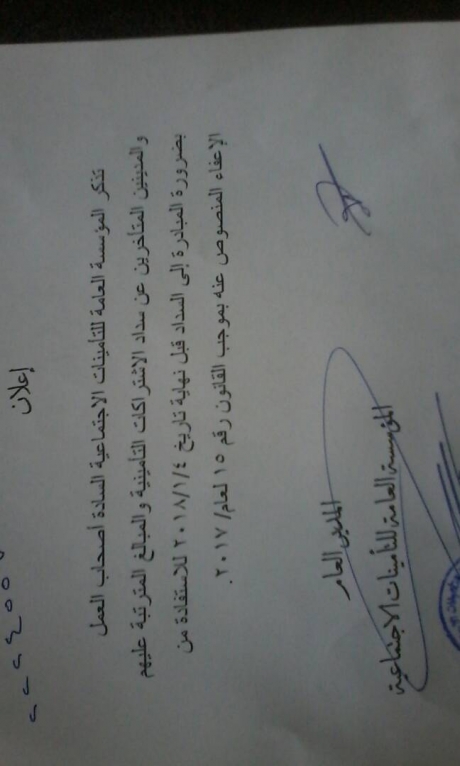 إعلان
تذكر المؤسسة العامة للتأمينات الاجتماعية السادة أصحاب العمل
والمدينين المتأخرين عن سداد الاشتراكات التأمينية والمبالغ المترتبة عليهم
بضرورة المبادرة إلى السداد قبل نهاية تاريخ ٢٠١٨/١/٤ للاستفادة من
الإعفاء المنصوص عنه بموجب القانون رقم ١٥ لعام/ ٢٠١٧ .
المدير العام
المؤسسة العامة للتأمينات الاجتماعية